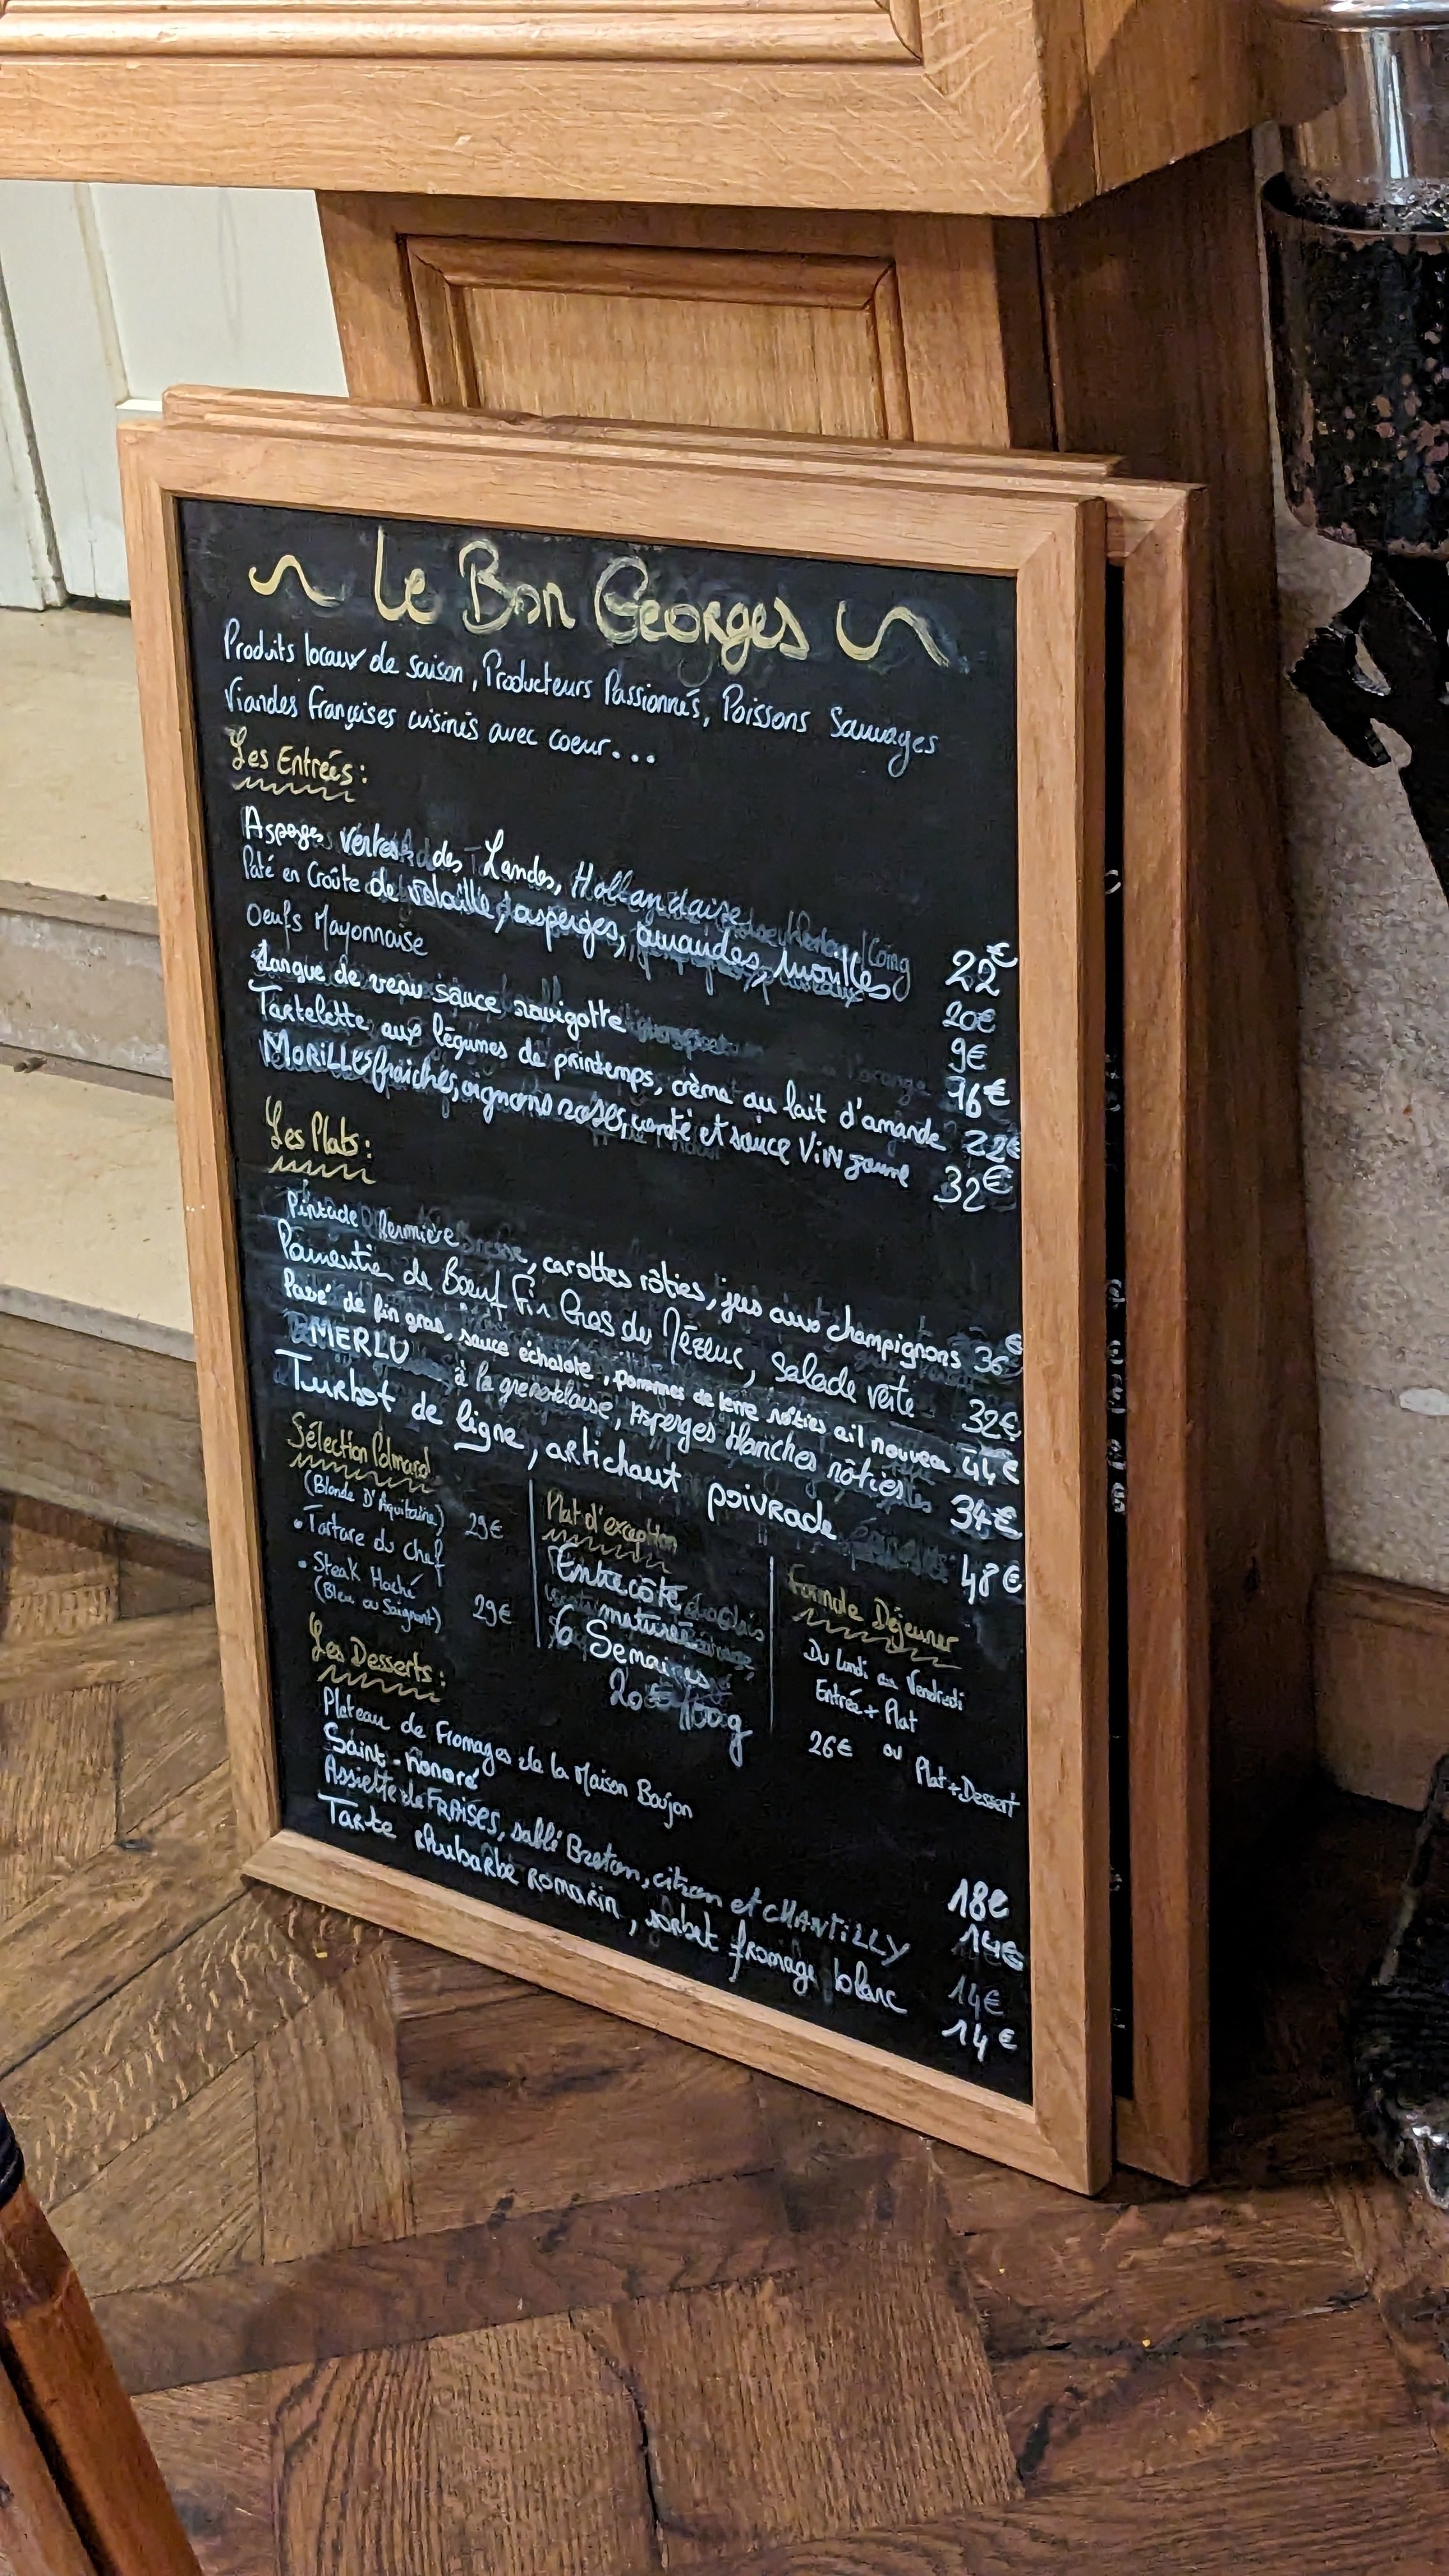 ~ Le Bon Georges ~
Produits locaux de saison, Producteurs Passionnés, Poissons Sauvages
Viandes françaises cuisinés avec coeur...
Les Entrées:
Asperges vertes des Landes, Hollandaise 22€
Paté en Croûte de volaille, asperges, amandes, morilles 20€
Oeufs Mayonnaise 9€
Langue de veau sauce ravigotte 16€
Tartelette aux légumes de printemps, crème au lait d'amande 22€
MORiLLES fraiches, oignons roses, comté et sauce ViN jaune 32€
Les Plats:
Pintade Fermière, carottes rôties, jus aux champignons 36€
Parmentier de Bœuf Fin Gras du Mézenc, Salade verte 32€
Pavé de fin gras, sauce échalote, pommes de terre rôties ail nouveau 44€
MERLU à la grenobloise, Asperges blanches rôties 34€
Turbot de ligne, artichaut poivrade 48€
Sélection Polmard
(Blonde D'Aquitaine)
• Tartare du chef 29€
• Steak Haché 29€
(Bleu ou Saignant)
Plat d'exception
Entrecôte
maturée
6 Semaines
20€ 100g
Formule Déjeuner
Du Lundi au Vendredi
Entrée + Plat
26€ ou Plat + Dessert
Les Desserts:
Plateau de Fromages de la Maison Boujon 18€
Saint-Honoré 14€
Assiette de FRAISES, sablé Breton, citron et CHANTiLLY 14€
Tarte rhubarbe romarin, sorbet fromage blanc 14€